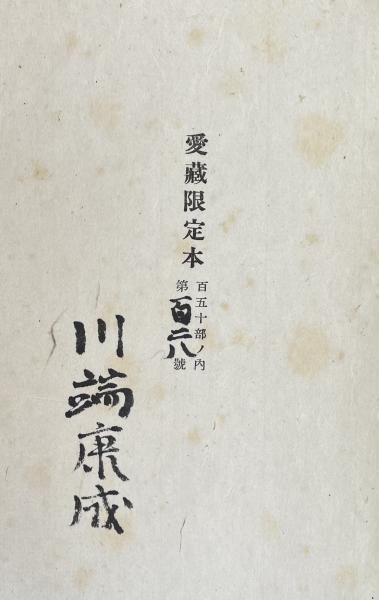 愛藏限定本
百五十部ノ內
第百二八號
川端康成